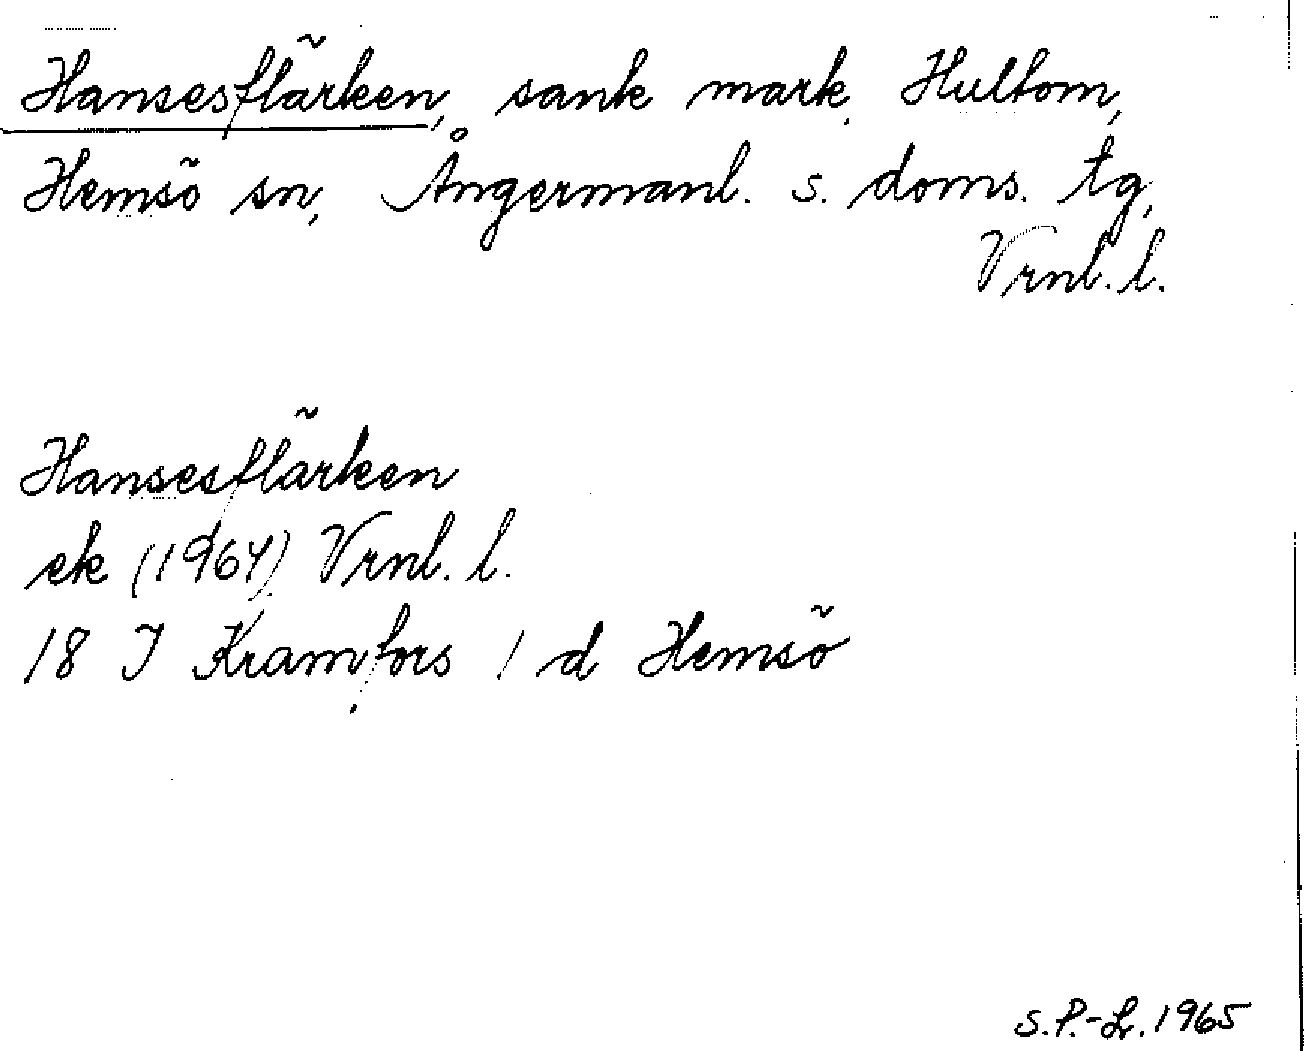 Hansesflärken, sank mark, Hultom,
Hemsö sn, Ångermanl. s. doms. tg,
Vrnl. l.
Hansesflärken
ek (1964) Vrnl. l.
18 J Kramfors 1 d Hemsö
S.P.-Lr. 1965